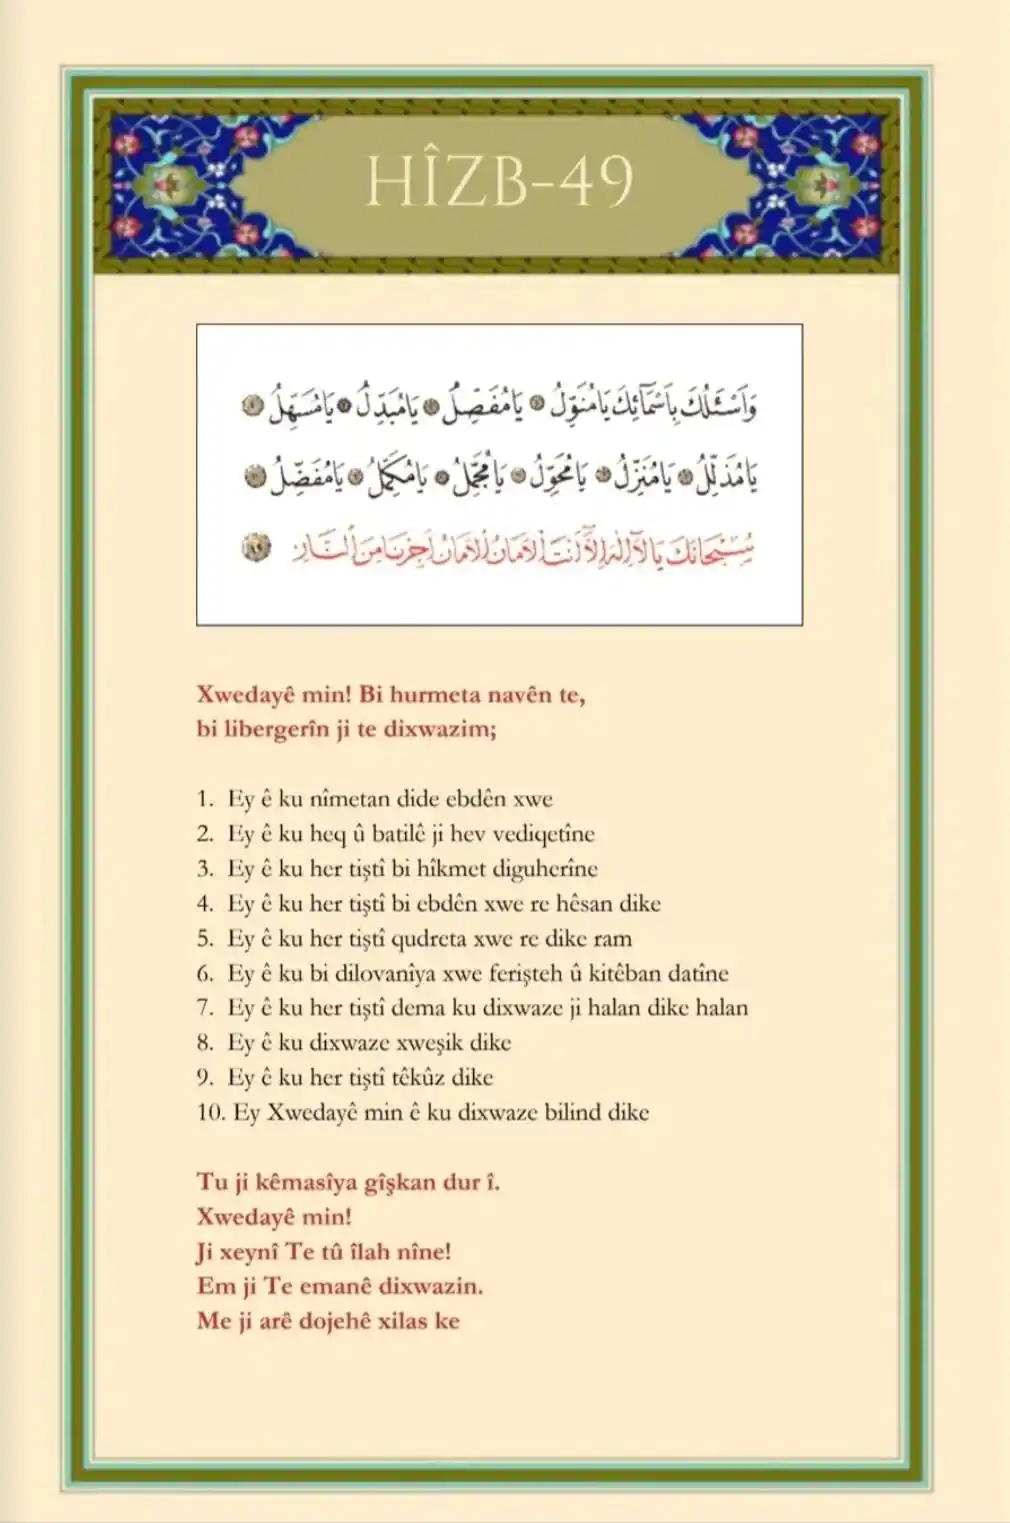 HÎZB-49
وَاَسْئَلُكَ بِاَسْمَآئِكَ يَامُنَوِّلُ يَامُفَصِّلُ يَامُبَدِّلُ يَامُسَهِّلُ
يَامُذَلِّلُ يَامُنَزِّلُ يَامُحَوِّلُ يَامُجَمِّلُ يَامُكَمِّلُ يَامُفَضِّلُ
سُبْحَانَكَ يَالآَاِلٰهَ اِلآَّ اَنْتَ اَلْاَمَانُ اَلْاَمَانُ اَجِرْنَا مِنَ النَّارِ
Xwedayê min! Bi hurmeta navên te,
bi libergerîn ji te dixwazim;
1. Ey ê ku nîmetan dide ebdên xwe
2. Ey ê ku heq û batilê ji hev vediqetîne
3. Ey ê ku her tiştî bi hîkmet diguherîne
4. Ey ê ku her tiştî bi ebdên xwe re hêsan dike
5. Ey ê ku her tiştî qudreta xwe re dike ram
6. Ey ê ku bi dilovanîya xwe ferişteh û kitêban datîne
7. Ey ê ku her tiştî dema ku dixwaze ji halan dike halan
8. Ey ê ku dixwaze xweşik dike
9. Ey ê ku her tiştî têkûz dike
10. Ey Xwedayê min ê ku dixwaze bilind dike
Tu ji kêmasîya gîşkan dur î.
Xwedayê min!
Ji xeynî Te tû îlah nîne!
Em ji Te emanê dixwazin.
Me ji arê dojehê xilas ke